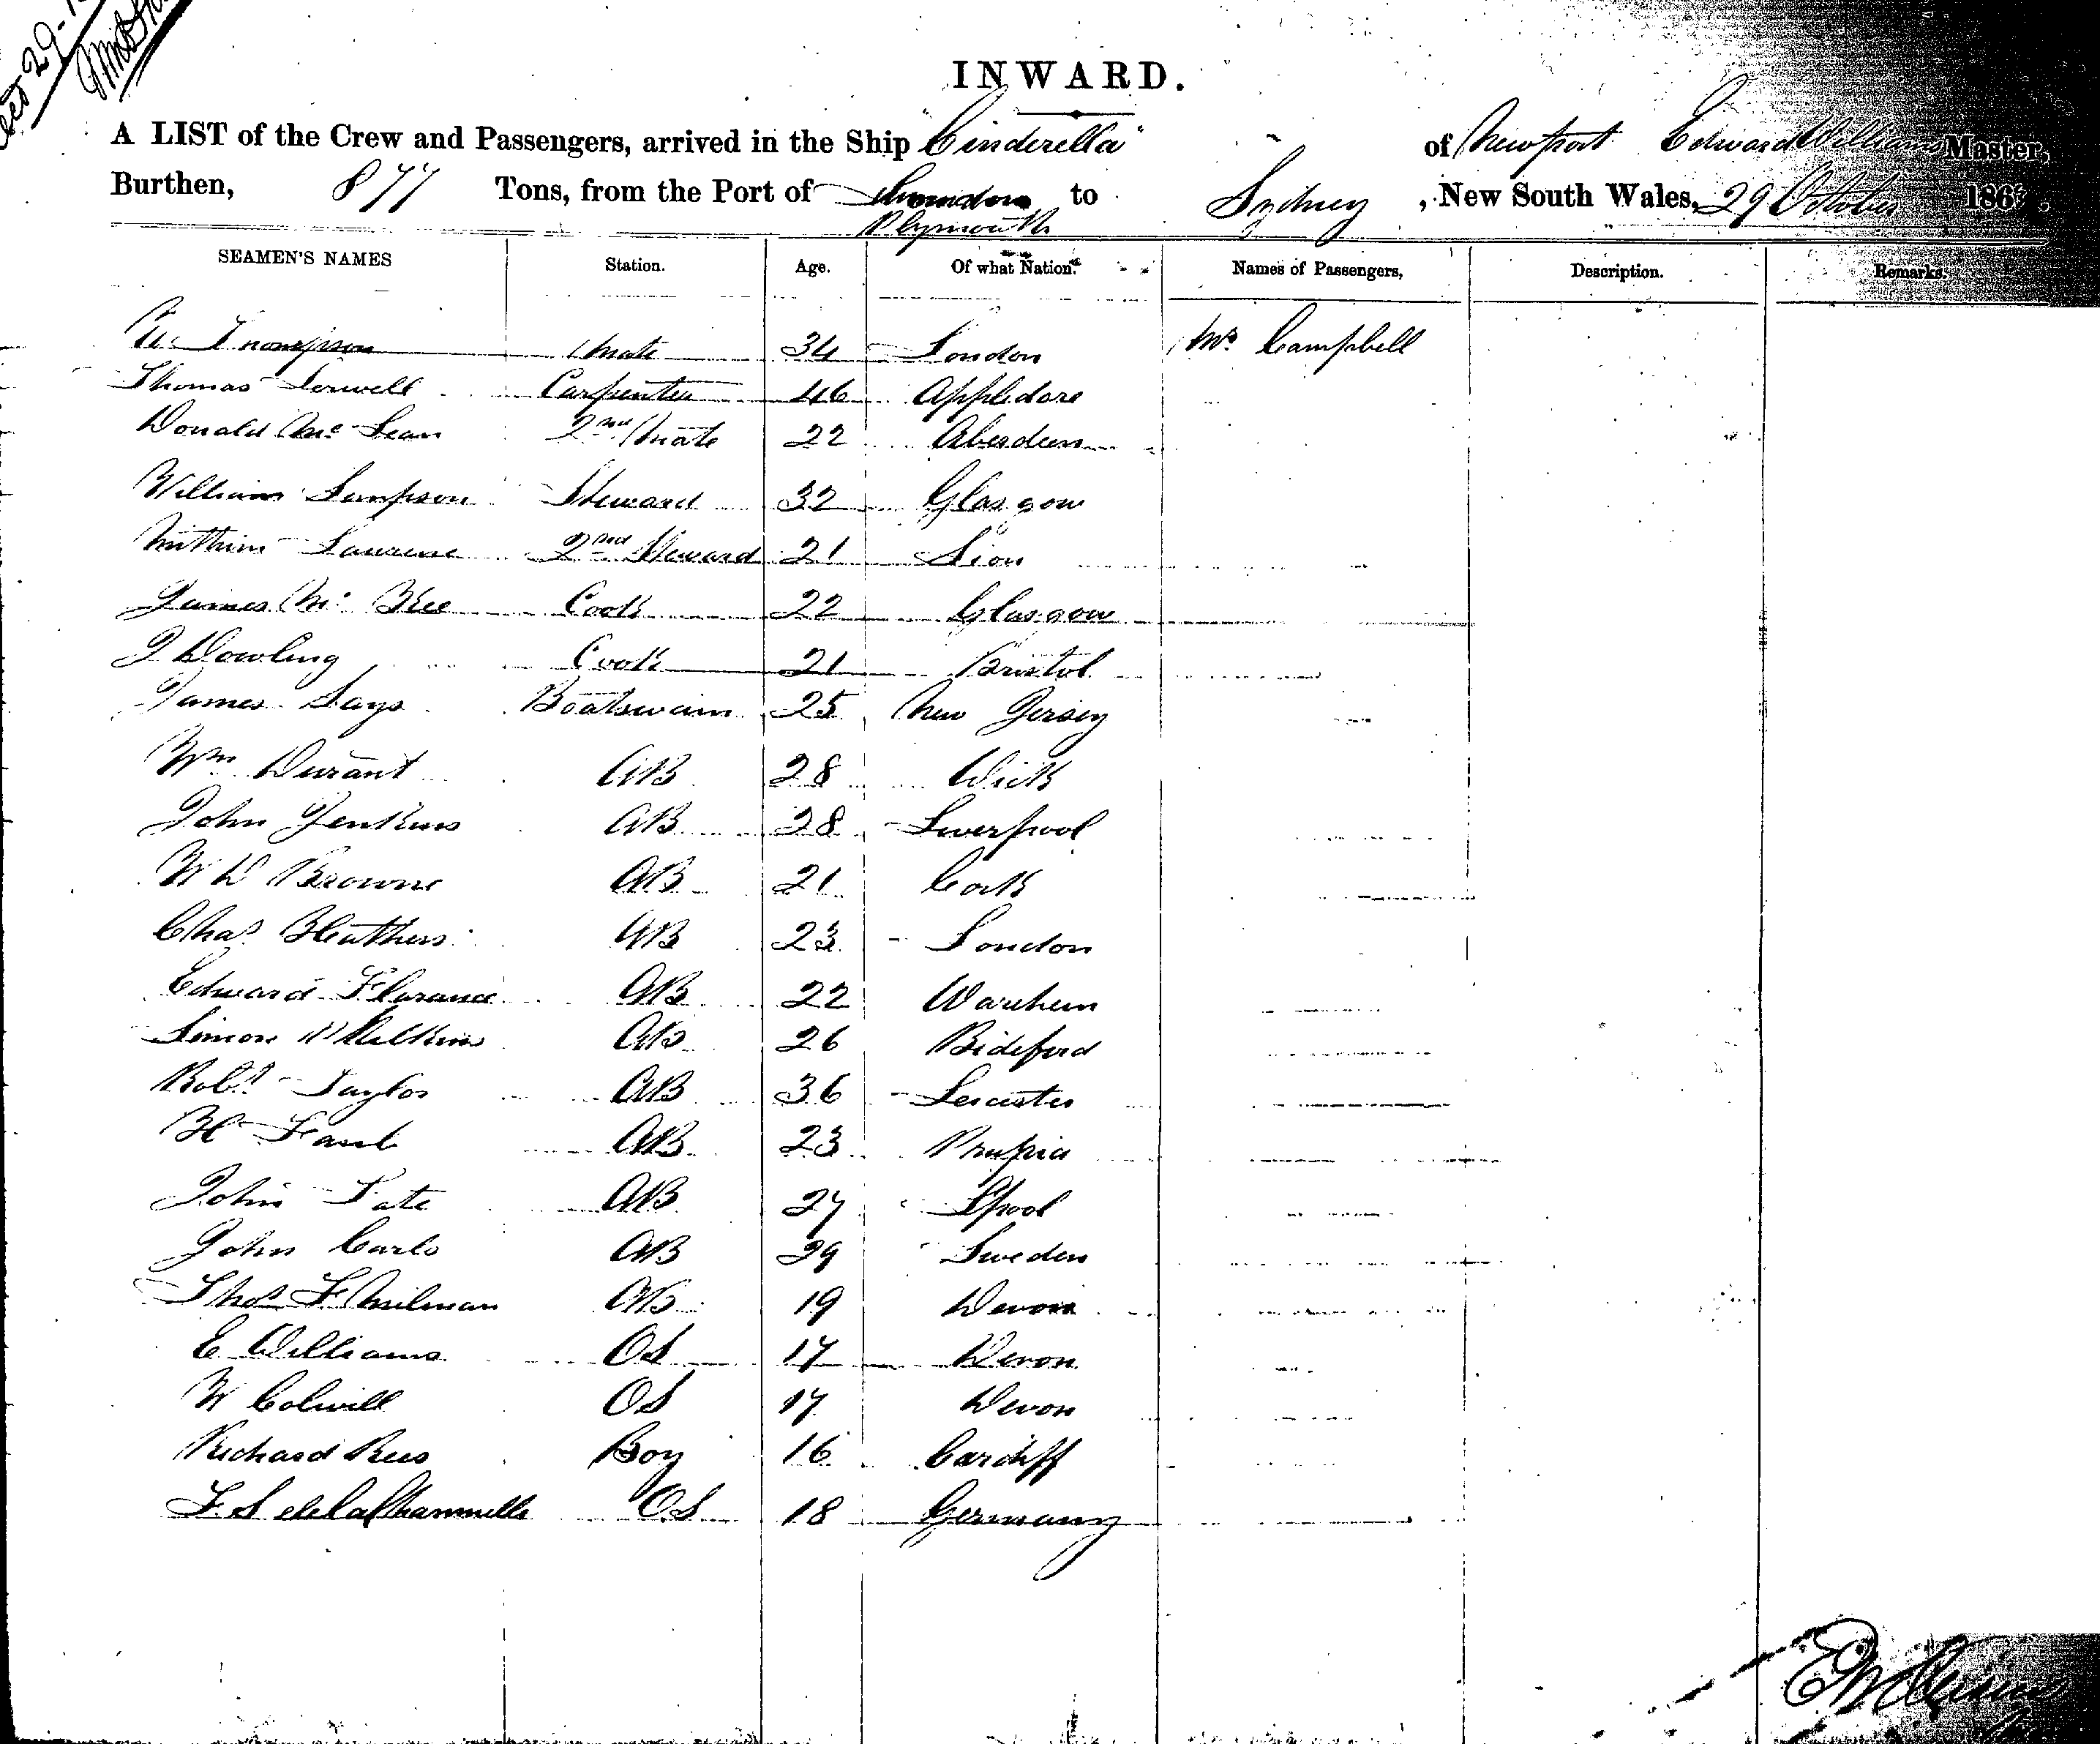 Oct 29
INWARD.
A LIST of the Crew and Passengers, arrived in the Ship "Cinderella" of Newport Edward Williams Master,
Burthen, 877 Tons, from the Port of London to Sydney, New South Wales, 29 October 186
Plymouth
SEAMEN'S NAMES Station. Age. Of what Nation. Names of Passengers, Description. Remarks.
Thompson Mate 34 London Mrs Campbell
Thomas Carpenter 46 Appledore
Donald McLean 2nd Mate 22 Aberdeen
William Simpson Steward 32 Glasgow
2nd Steward 21
James Mc Cook 22 Glasgow
J Dowling Cook 21 Bristol
James Says Boatswain 25 New Jersey
Wm Durant AB 28 Wick
John Jenkins AB 28 Liverpool
W D Browne AB 21 Cork
Chas Heathers AB 23 London
Edward Florance AB 22 Warehem
Simon AB 26 Bideford
Robt Taylor AB 36 Leicester
H AB 23 Prussia
John Tate AB 27 Lpool
John Carls AB 29 Sweden
Thos F Milman AB 19 Devon
E Williams OS 17 Devon
W Colwill OS 17 Devon
Richard Rees Boy 16 Cardiff
F. S. OS 18 Germany